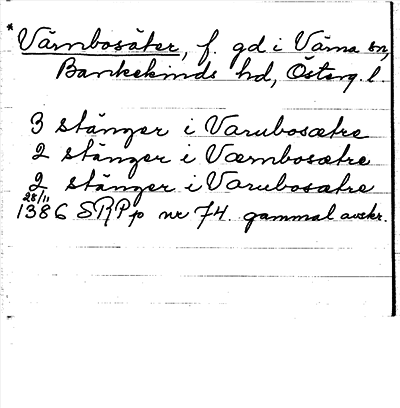 * Värnbosäter, f. gd i Värna sn,
Bankekinds hd, Österg. l.
3 stänger i Varubosætre
2 stänger i Værnbosætre
2 stänger i Varubosætre
28/11
1386 SRPp nr 74. gammal avskr.